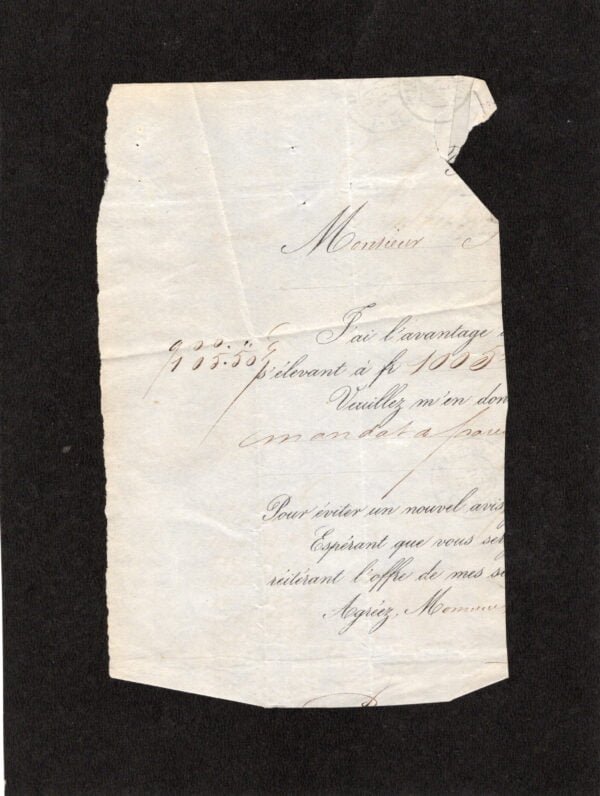 Monsieur
900..
105.50
J'ai l'avantage
s'élevant à fr 1005
Veuillez m'en don
mandat à
Pour éviter un nouvel avis,
Espérant que vous se
réitérant l'offre de mes se
Agréez, Monsieur